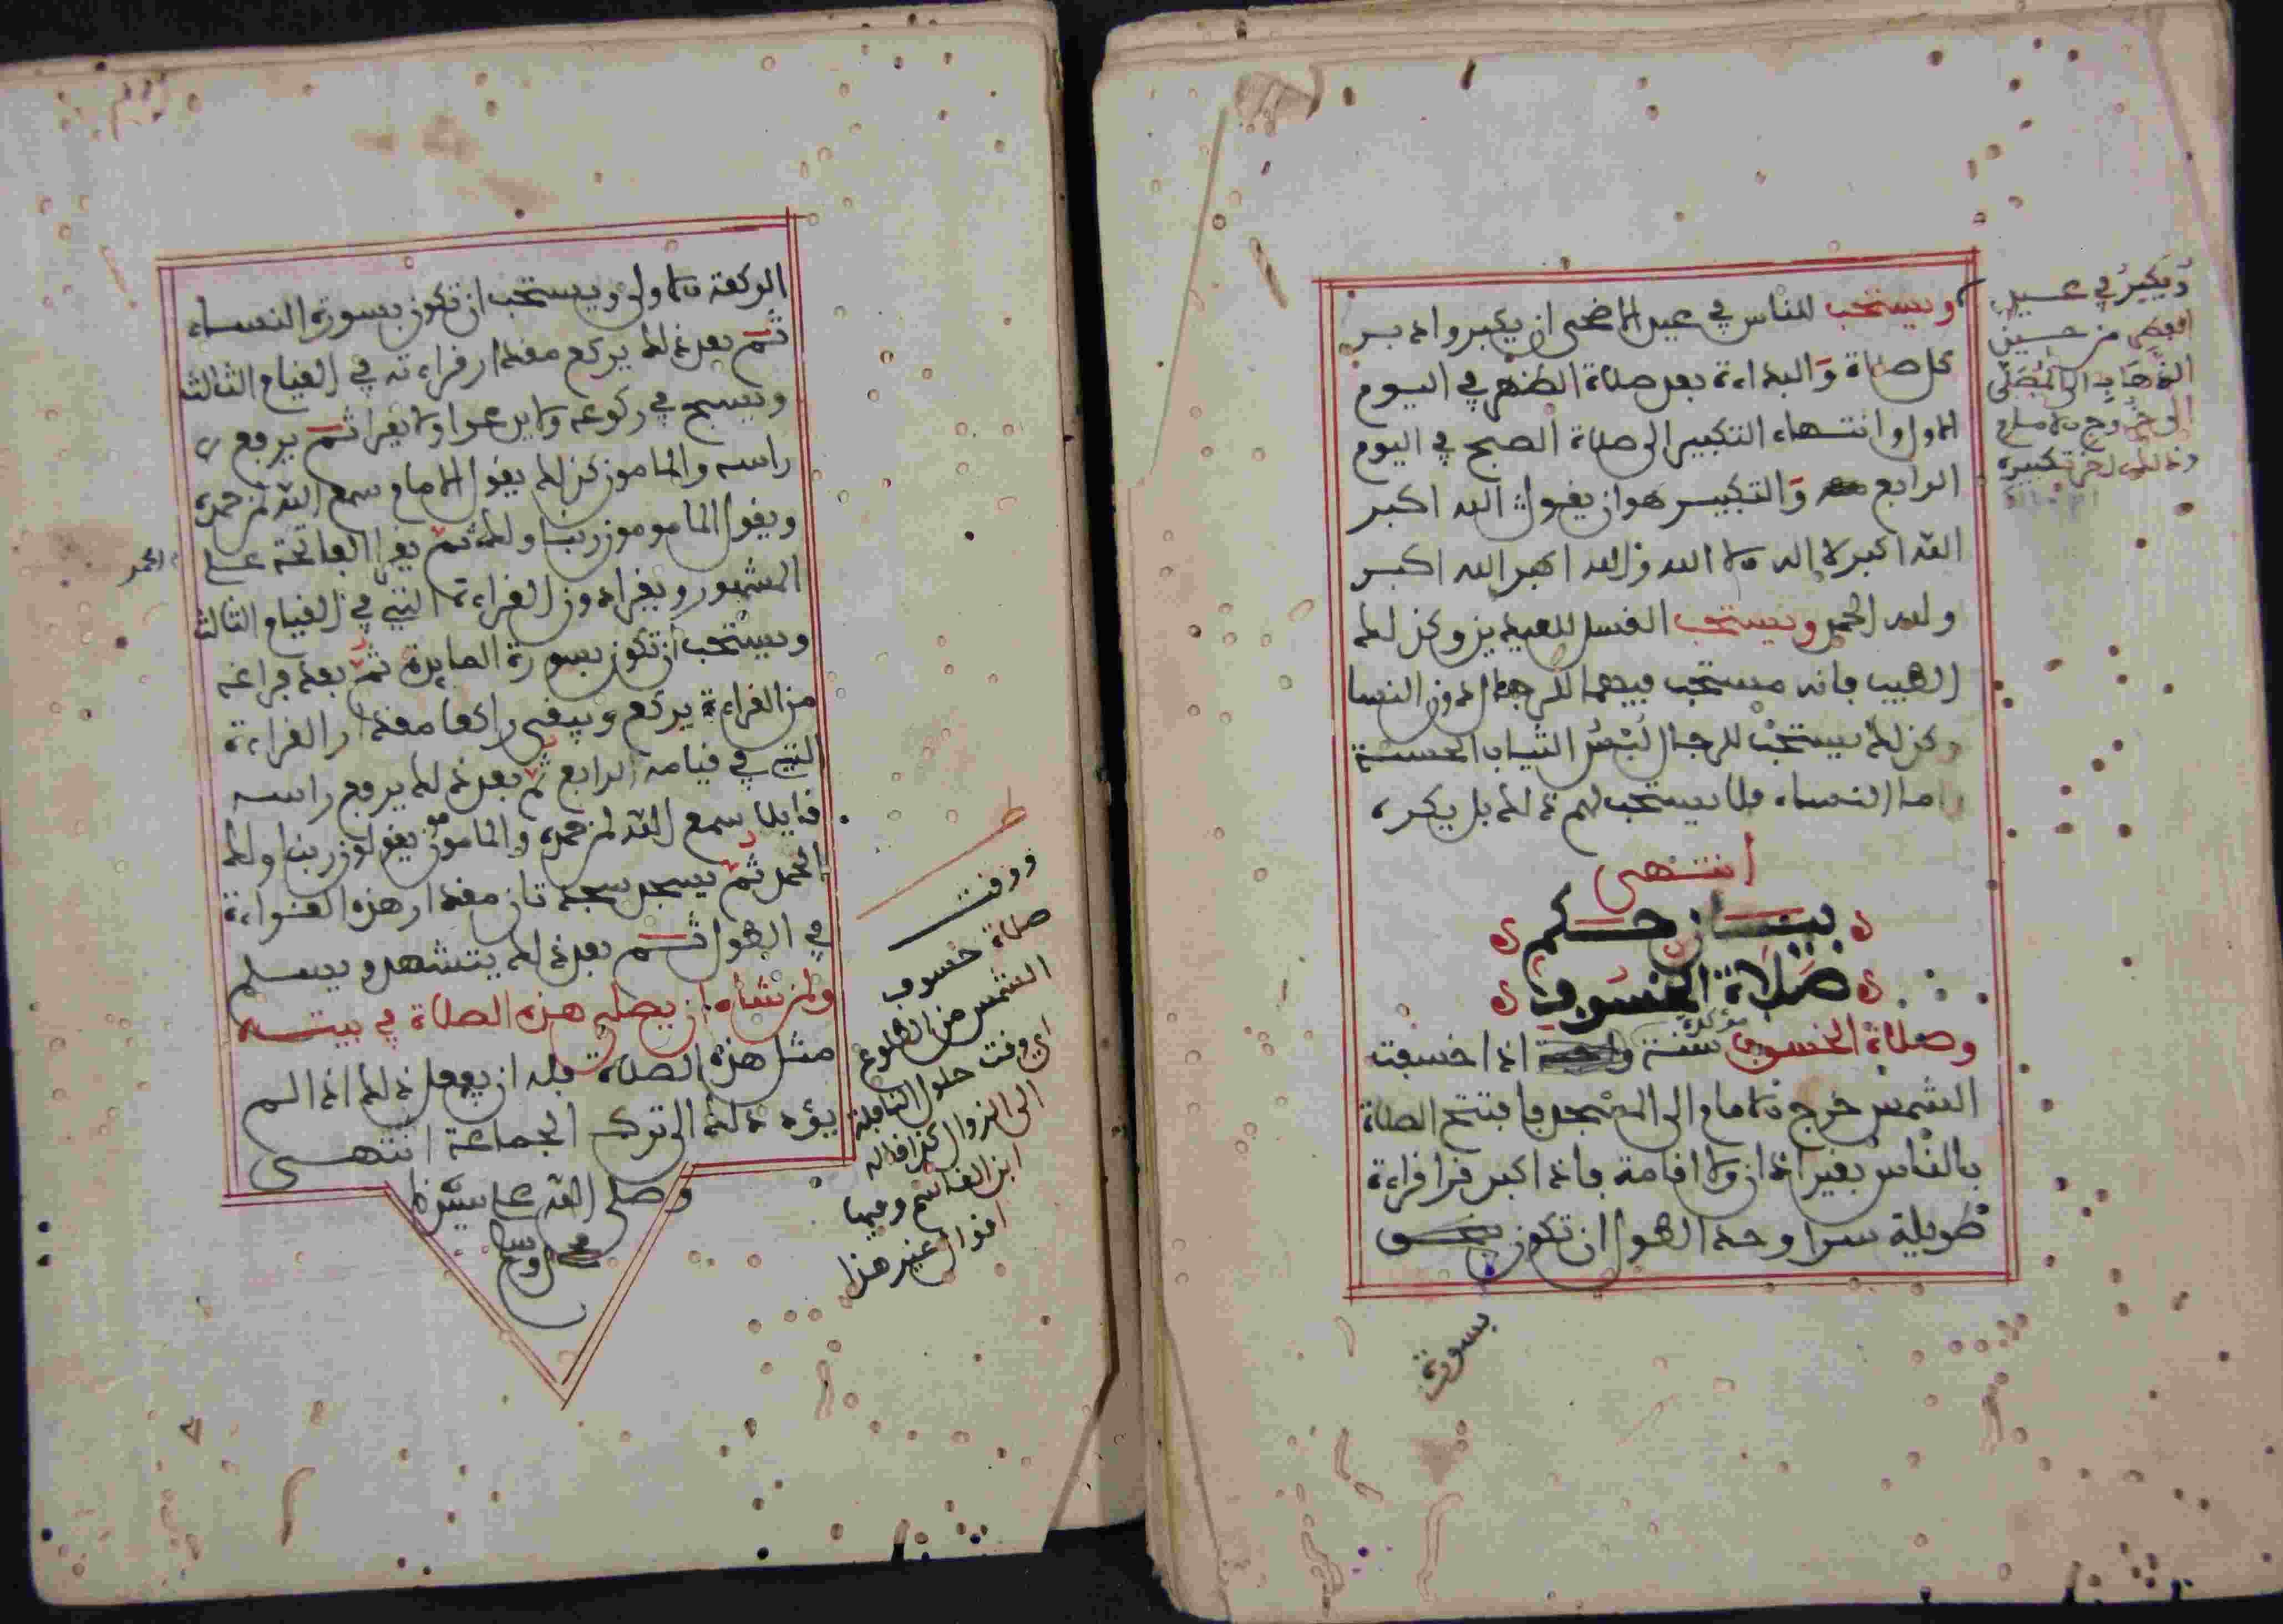 ويستحب للناس في عيد الاضحى ان يكبروا دبر
كل صلاة والبداءة بعد صلاة الظهر في اليوم
الاول وانتهاء التكبير الى صلاة الصبح في اليوم
الرابع والتكبير هو ان يقول الله اكبر
الله اكبر لا اله الا الله والله اكبر الله اكبر
ولله الحمد ويستحب الغسل للعيدين وكذلك
الطيب فانه مستحب فيهما للرجال دون النسا
وكذلك يستحب للرجال لبس الثياب الحسنة
واما النساء فلا يستحب لهم ذلك بل يكره
انتهى
بيان حكم
صلاة الخسوف
وصلاة الخسوف سنة مؤكدة واجبة اذا خسفت
الشمس خرج الامام الى المسجد فافتتح الصلاة
بالناس بغير اذان ولا اقامة فاذا كبر قرا قراءة
طويلة سرا وحد الطول ان تكون بنحو
بسورة
ويكبر في عيد
الفطر من حين
الذهاب الى المصلى
الى خروج الامام
وذلك اخر تكبيره
الركعة الاولى ويستحب ان تكون بسورة النساء
ثم بعد ذلك يركع مقدار قراءته في القيام الثالث
ويسبح في ركوعه ولا يدعوا ولا يقرا ثم يرفع
راسه والماموم كذلك يقول الامام سمع الله لمن حمده
ويقول المامومون ربنا ولك ثم يقرا الفاتحة على
الحمد
المشهور ويقرا دون القراءة التي في القيام الثالث
ويستحب ان تكون بسورة المايدة ثم بعد فراغه
من القراءة يركع ويبقى راكعا مقدار القراءة
التي في قيامه الرابع ثم بعد ذلك يرفع راسه
قايلا سمع الله لمن حمده والمامومون يقولون ربنا ولك
الحمد ثم يسجد سجدتان مقدار هذه القراءة
في الطول ثم بعد ذلك يتشهد ويسلم
ولمن شاء ان يصلي هذه الصلاة في بيته
مثل هذه الصلاة فله ان يفعل ذلك اذا لم
يؤد ذلك الى ترك الجماعة انتهى
وصلى الله على سيدنا
محمد وسلم
ووقت
صلاة خسوف
الشمس من الطلوع
اي وقت حلول النافلة
الى الزوال كذا قاله
ابن القاسم وفيها
اقوال غير هذا